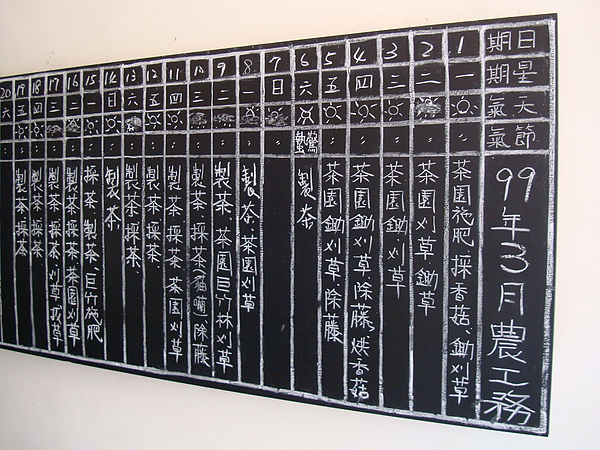 日期
星期
天氣
節氣
99年3月農工務
1 一 茶園施肥.採香菇.鋤刈草
2 二 茶園刈草.鋤草
3 三 茶園.鋤.刈草
4 四 茶園鋤刈草除藤.烘香菇
5 五 茶園.鋤.刈草除藤
6 六 驚蟄 製茶.
7 日
8 一 製茶.茶園刈草
9 二 製茶.茶園巨竹林刈草
10 三 製茶.採茶(貓嘴)除藤
11 四 製茶.採茶.茶園刈草
12 五 製茶.採茶.
13 六 製茶採茶.
14 日 製茶.
15 一 採茶.製茶.巨竹施肥
16 二 製茶.採茶.茶園刈草
17 三 製茶.採茶.刈草
18 四 製茶採茶
19 五 製茶採茶
20 六